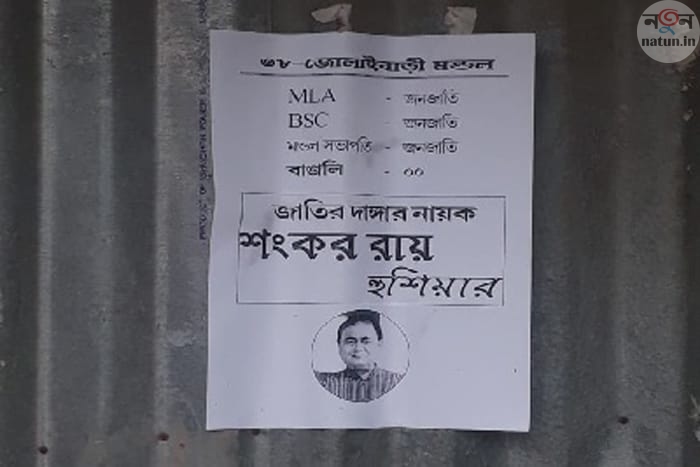 নতুন
natun.in
৩৮ জোলাইবাড়ী মন্ডল
MLA - জনজাতি
BSC - জনজাতি
মন্ডল সভাপতি - জনজাতি
বাঙ্গালি - ००
জাতির দাঙ্গার নায়ক
শংকর রায়
হুশিয়ার